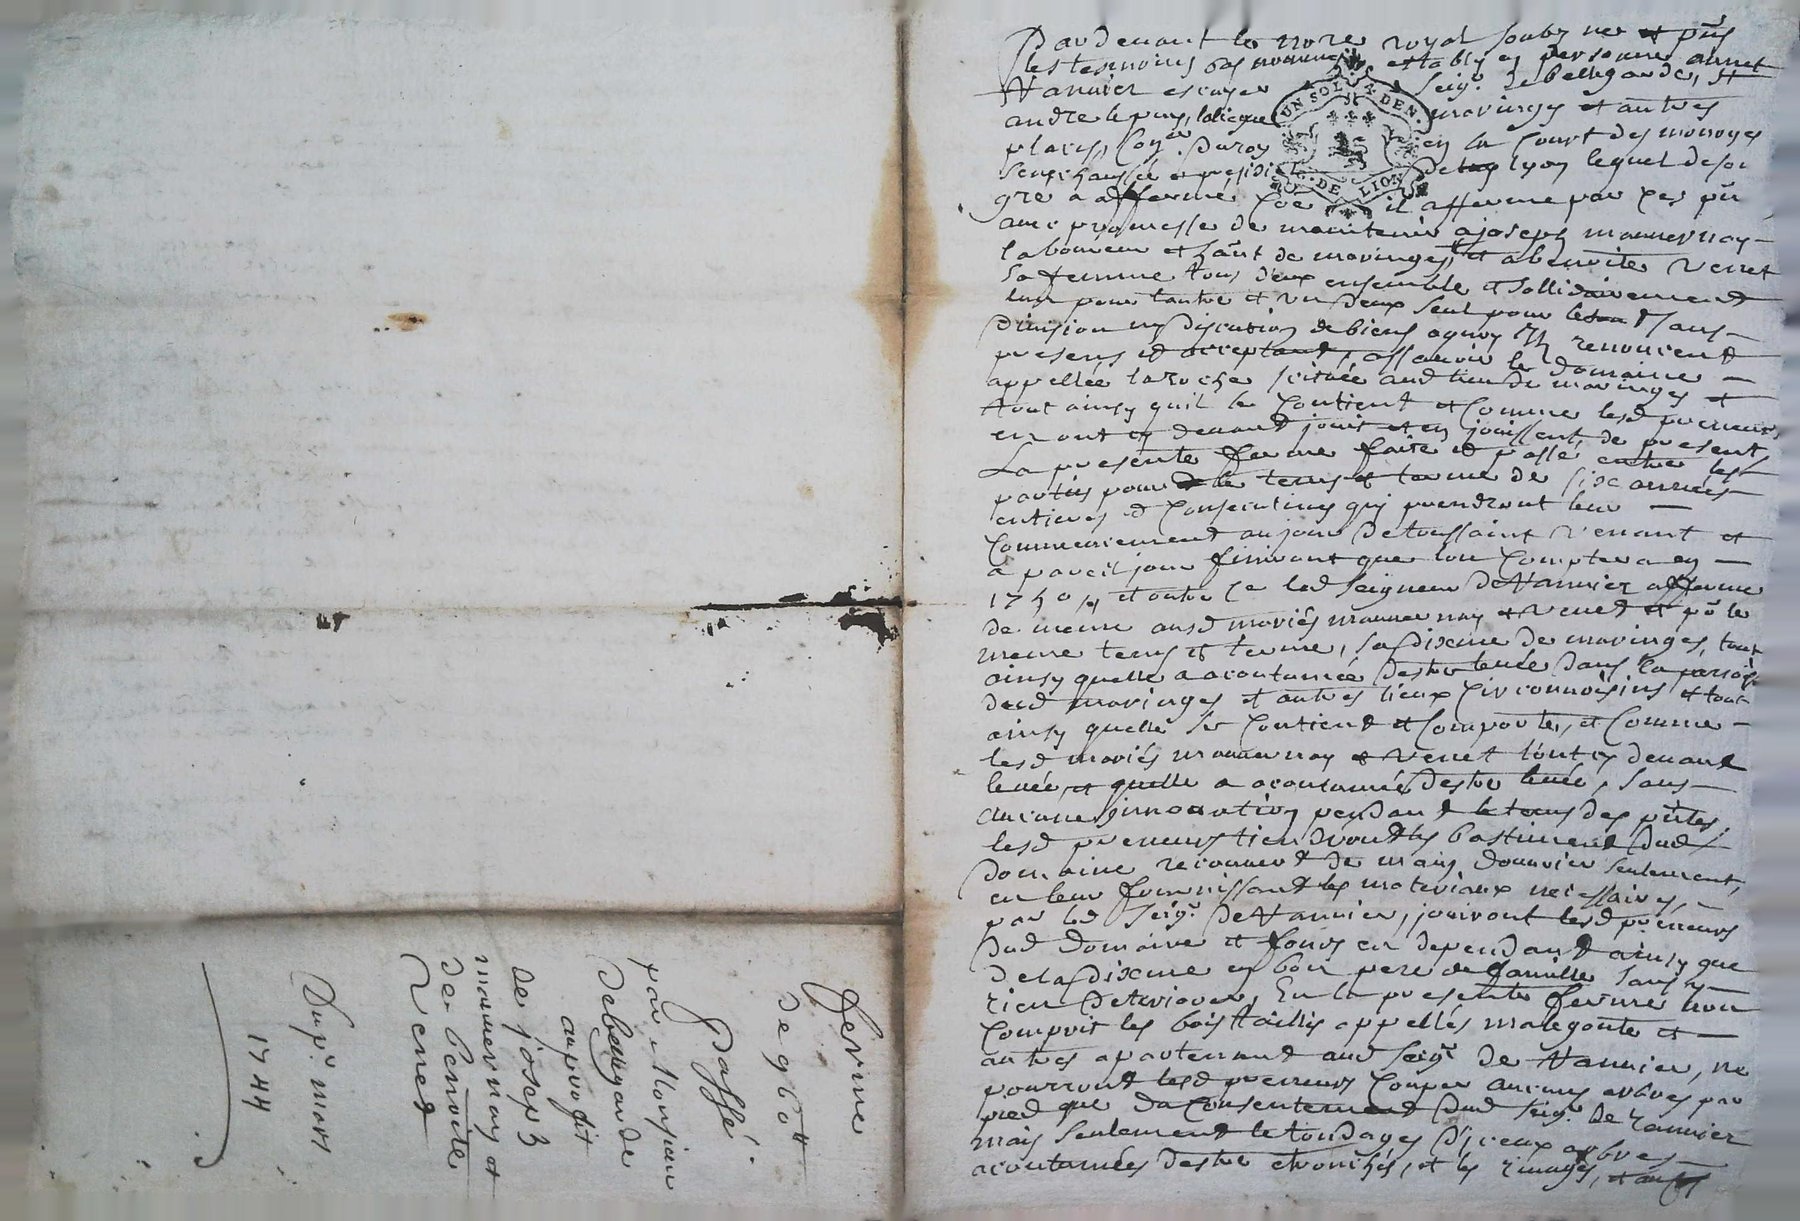 Pardevant le no.re royal soubz né et pñs
les tesmoins bas nommés estably en personne annet
Vannier escuyer Seigr. de bellegarde, St
andre le puy, lalieque maringes et autres
places, Conr. du roy en la Court des monoyes
Senechaussée et presidi de lyon lequel de son
gré a affermé Coe il afferme par Ces pñ
avec promesse de maintenir a joseph mauvernay
laboureur et hañt de maringes, et a benoite Venet
Sa femme tous deux ensemble et sollidairement
lun pour lautre et un deux seul pour le tout Sans
division ny discution de biens a quoy Ils renoncent
presens et acceptant, assavoir le domaine
appellée la roche scituée aud lieu de maringes et
tout ainsy quil se Contient et Comme lesd preneurs
en ont cy devant jouit et en jouissent de present,
La presente ferme faite et passé entre les
parties pour le tems et terme de Six années
entieres et Consecutives qui prendront leur
Commencement au jour de toussaint Venant et
a pareil jour finiront que lon Comptera en
1750, et outre Ce led Seigneur de Vannier afferme
de meme ausd mariés mauvernay et Venet et pr le
meme tems et terme, sa dixme de maringes, tout
ainsy quelle a acoutumée destre levée dans la parroisse
dud maringes et autres lieux Circonvoisins et tout
ainsy quelle se Contient et Comporte, et Comme
lesd mariés mauvernay et Venet lont cy devant
levée, et quelle a acoutumée destre levée, sans
aucune innovation pendant le tems des pñtes,
lesd preneurs tiendront les bastiment dud
domaine recouvert de main douvrier seulement,
en leur fournissant les materiaux necessaires,
par led Seigr. de Vannier, jouiront lesd preneurs
dud domaine et fonds en dependant ainsy que
de la dixme en bon pere de famille sans y
rien deteriorer, En la presente ferme non
Compris les bois taillis appellés malegoute et
autres apartenant aud Seigr. de Vannier, ne
pourront lesd preneurs Couper aucuns arbres par
pied que du Consentement dud Seigr. de Vannier
mais seulement le tondages d'iceux arbres
acoutumées destre etronchés, et les
ferme
de 960#
Passé.
par Monsieur
de bellegarde
au profit
de joseph
mauvernay et
de benoite
Venet
Du 9e. mars
1744
UN SOL 4 DEN.
G. DE LION